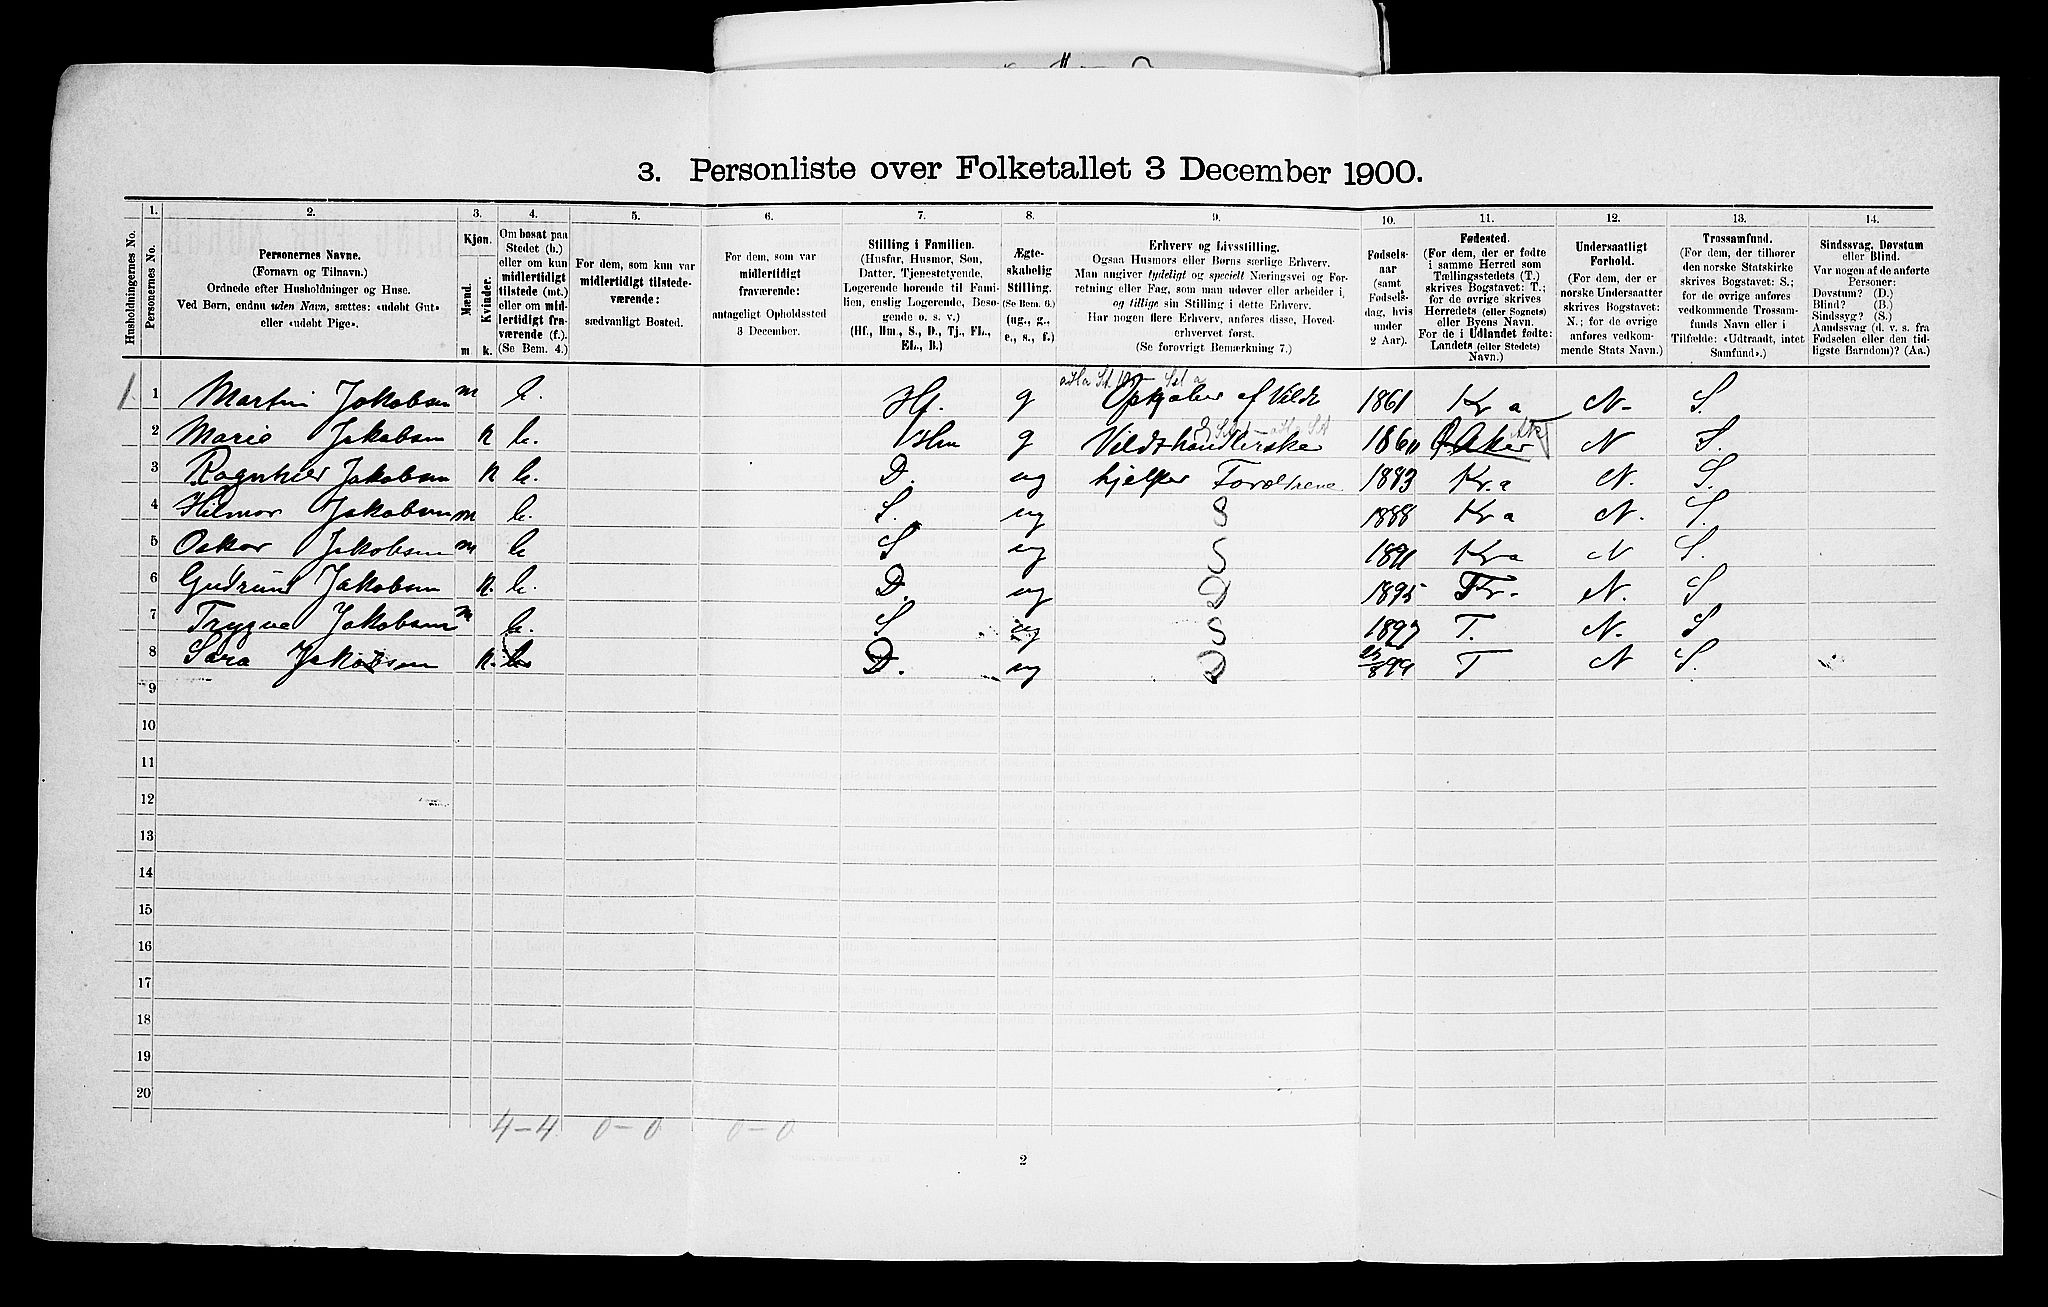 3. Personliste over Folketallet 3 December 1900.
Husholdningernes No.
1. Personernes No.
2. Personernes Navne.
(Fornavn og Tilnavn.)
Ordnede efter Husholdninger og Huse.
Ved Børn, endnu uden Navn, sættes: «udøbt Gut»
eller «udøbt Pige».
3. Kjøn.
Mænd. m
Kvinder. k.
4. Om bosat paa
Stedet (b.)
eller om kun
midlertidigt
tilstede (mt.)
eller om mid-
lertidigt fra-
værende (f.).
(Se Bem. 4.)
5. For dem, som kun var
midlertidigt tilstede-
værende:
sædvanligt Bosted.
6. For dem, som var
midlertidigt
fraværende:
antageligt Opholdssted
3 December.
7. Stilling i Familien.
(Husfar, Husmor, Søn,
Datter, Tjenestetyende,
Logerende hørende til Fami-
lien, enslig Logerende, Besø-
gende o. s. v.)
(Hf., Hm., S., D., Tj., FL.,
EL., B.)
8. Ægte-
skabelig
Stilling.
(Se Bem. 6.)
(ug., g.,
e., s., f.)
9. Erhverv og Livsstilling.
Ogsaa Husmors eller Børns særlige Erhverv.
Man angiver tydeligt og specielt Næringsvei og For-
retning eller Fag, som man udøver eller arbeider i,
og tillige sin Stilling i dette Erhverv.
Har nogen flere Erhverv, anføres disse, Hoved-
erhvervet først.
(Se forøvrigt Bemærkning 7.)
10. Fødsels-
aar
(samt
Fødsels-
dag, hvis
under
2 Aar).
11. Fødested.
(For dem, der er fødte
i samme Herred som
Tællingsstedets (T.)
skrives Bogstavet: T.;
for de øvrige skrives
Herredets (eller Sognets)
eller Byens Navn.
For de i Udlandet fødte:
Landets (eller Stedets)
Navn.)
12. Undersaatligt
Forhold.
(For dem, der er
norske Undersaatter
skrives Bogstavet:
N.; for de øvrige
anføres vedkom-
mende Stats Navn.)
13. Trossamfund.
(For dem, der tilhører
den norske Statskirke
skrives Bogstavet: S.;
for de øvrige anføres
vedkommende Trossam-
funds Navn eller i
Tilfælde: «Udtraadt, intet
Samfund».)
14. Sindssvag, Døvstum
eller Blind.
Var nogen af de anførte
Personer:
Døvstum? (D.)
Blind? (B.)
Sindssyg? (S.)
Aandssvag (d. v. s. fra
Fødselen eller den tid-
ligste Barndom)? (Aa.)
1. 1 Martin Jakobsen m b. Hf. g Opkjøber af Vildt 1861 Kr a N. S.
2 Marie Jakobsen k b. Hm g Vildthandlerske Aker N S.
3 Ragnhild Jakobsen k b. D. ug hjelper Forældrene 1883 Kr.a N. S.
4 Hilmar Jakobsen m b. S. ug S 1888 Kr a N. S.
5 Oskar Jakobsen m b S ug S 1891 Kr a N S.
6 Gudrun Jakobsen k. b. D. ug D 1895 Kr. N. S
7 Trygve Jakobsen m b. S ug S 1897 T. N. S
8 Sara Jakobsen k. b D. ug D 899 T N S.
9
10
11
12
13
14
15
16
17
18
19
20
4-4 0-0 0-0
2